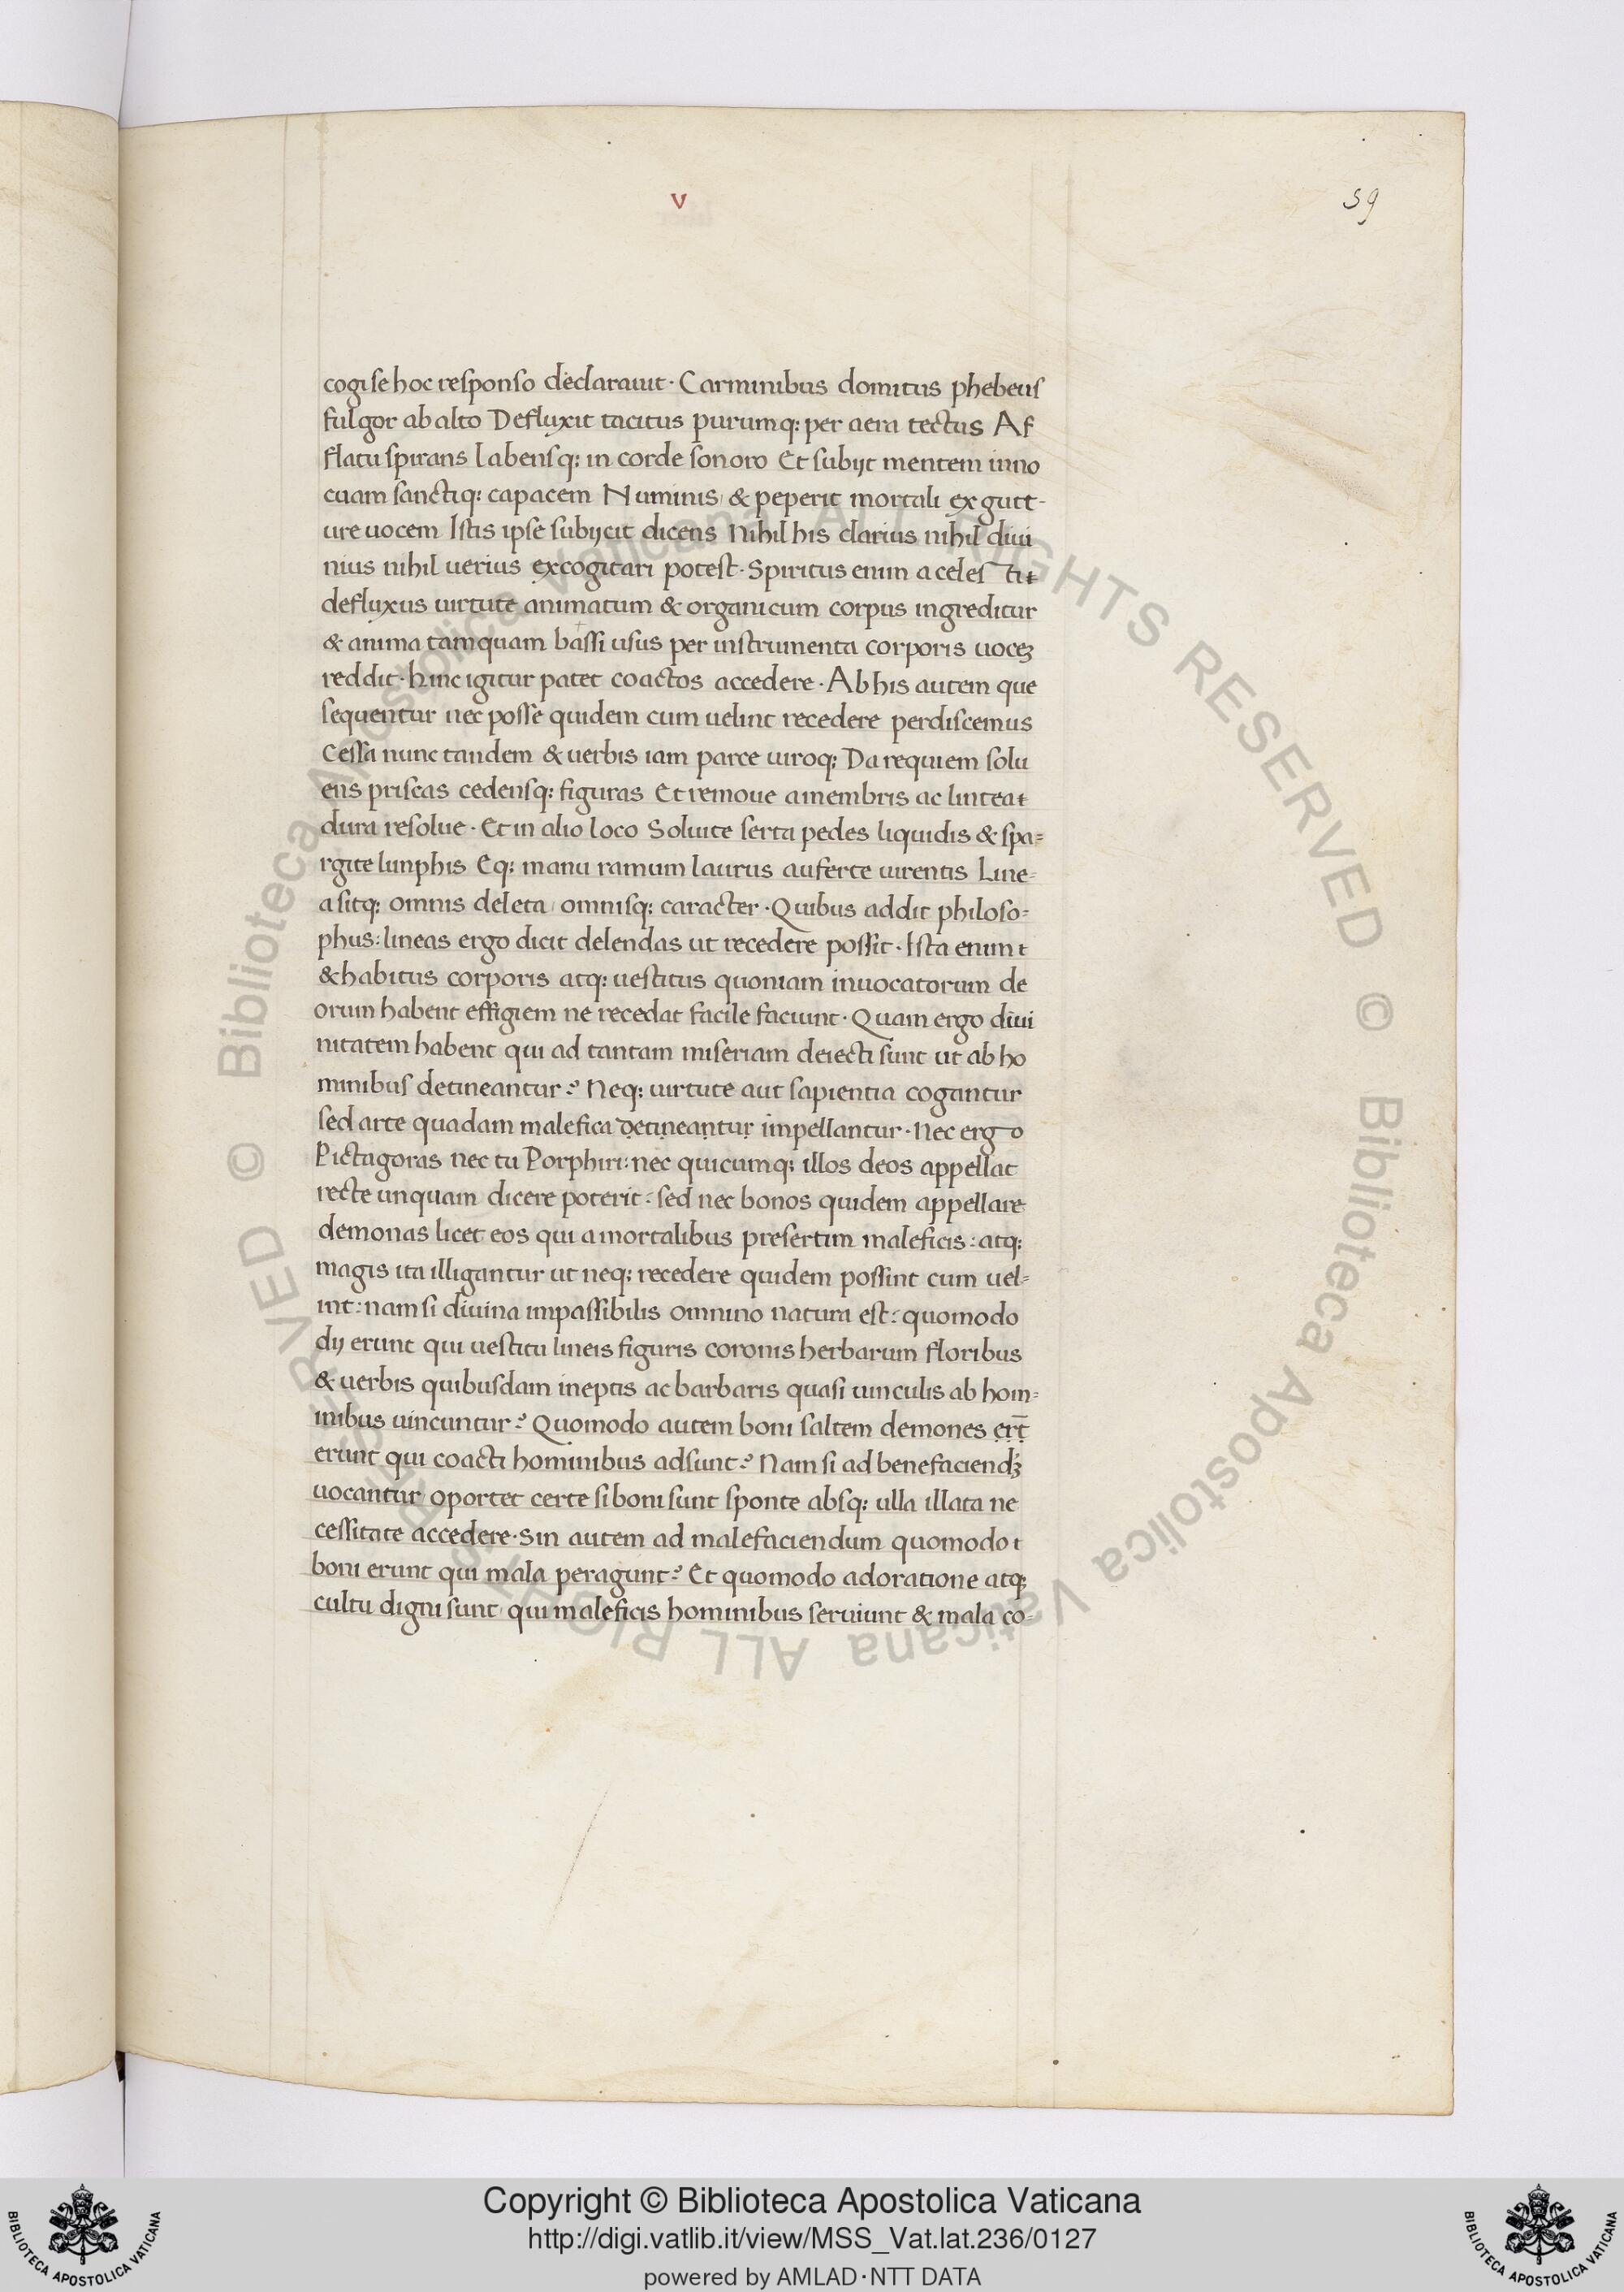 v
59
cogi se hoc responso declarauit · Carminibus domitus phebeus
fulgor ab alto Defluxit tacitus purumq: per aera tectus Af
flatu spirans labensq: in corde sonoro Et subijt mentem inno
cuam sanctiq: capacem Numinis & peperit mortali ex gutt-
ure uocem Istis ipse subijcit dicens Nihil his clarius nihil diui
nius nihil uerius excogitari potest · Spiritus enim a celesti
defluxus uirtute animatum & organicum corpus ingreditur
& anima tamquam bassi usus per instrumenta corporis uocez
reddit · hinc igitur patet coactos accedere · Ab his autem que
sequentur nec posse quidem cum uelint recedere perdiscemus
Cessa nunc tandem & uerbis iam parce uiroq: Da requiem solu
ens priscas cedensq: figuras Et remoue a membris ac lintea
dura resolue · Et in alio loco Soluite serta pedes liquidis & spa=
rgite limphis Eq: manu ramum laurus auferte uirentis Line-
a sitq: omnis deleta omnisq: caracter · Quibus addit philoso=
phus: lineas ergo dicit delendas ut recedere possit · Ista enim
& habitus corporis atq: uestitus quoniam inuocatorum de
orum habent effigiem ne recedat facile faciunt · Quam ergo diui
nitatem habent qui ad tantam miseriam deiecti sunt ut ab ho
minibus detineantur? Neq: uirtute aut sapientia cogantur
sed arte quadam malefica detineantur impellantur · Nec ergo
Pictagoras nec tu Porphiri: nec quicumq: illos deos appellat
recte unquam dicere poterit: sed nec bonos quidem appellare
demonas licet eos qui a mortalibus presertim maleficis: atq:
magis ita illigantur ut neq: recedere quidem possint cum uel=
int: nam si diuina impassibilis omnino natura est: quomodo
dij erunt qui uestitu lineis figuris coronis herbarum floribus
& uerbis quibusdam ineptis ac barbaris quasi uinculis ab hom=
inibus uincuntur? Quomodo autem boni saltem demones ert̄
erunt qui coacti hominibus adsunt? Nam si ad benefaciendz
uocantur oportet certe si boni sunt sponte absq: ulla illata ne
cessitate accedere · Sin autem ad malefaciendum quomodo
boni erunt qui mala peragunt? Et quomodo adoratione atq:
cultu digni sunt qui maleficis hominibus seruiunt & mala co-
© Biblioteca Apostolica Vaticana ALL RIGHTS RESERVED © Biblioteca Apostolica Vaticana ALL RIGHTS RESERVED
Copyright © Biblioteca Apostolica Vaticana
http://digi.vatlib.it/view/MSS_Vat.lat.236/0127
powered by AMLAD·NTT DATA
BIBLIOTECA APOSTOLICA VATICANA
BIBLIOTECA APOSTOLICA VATICANA